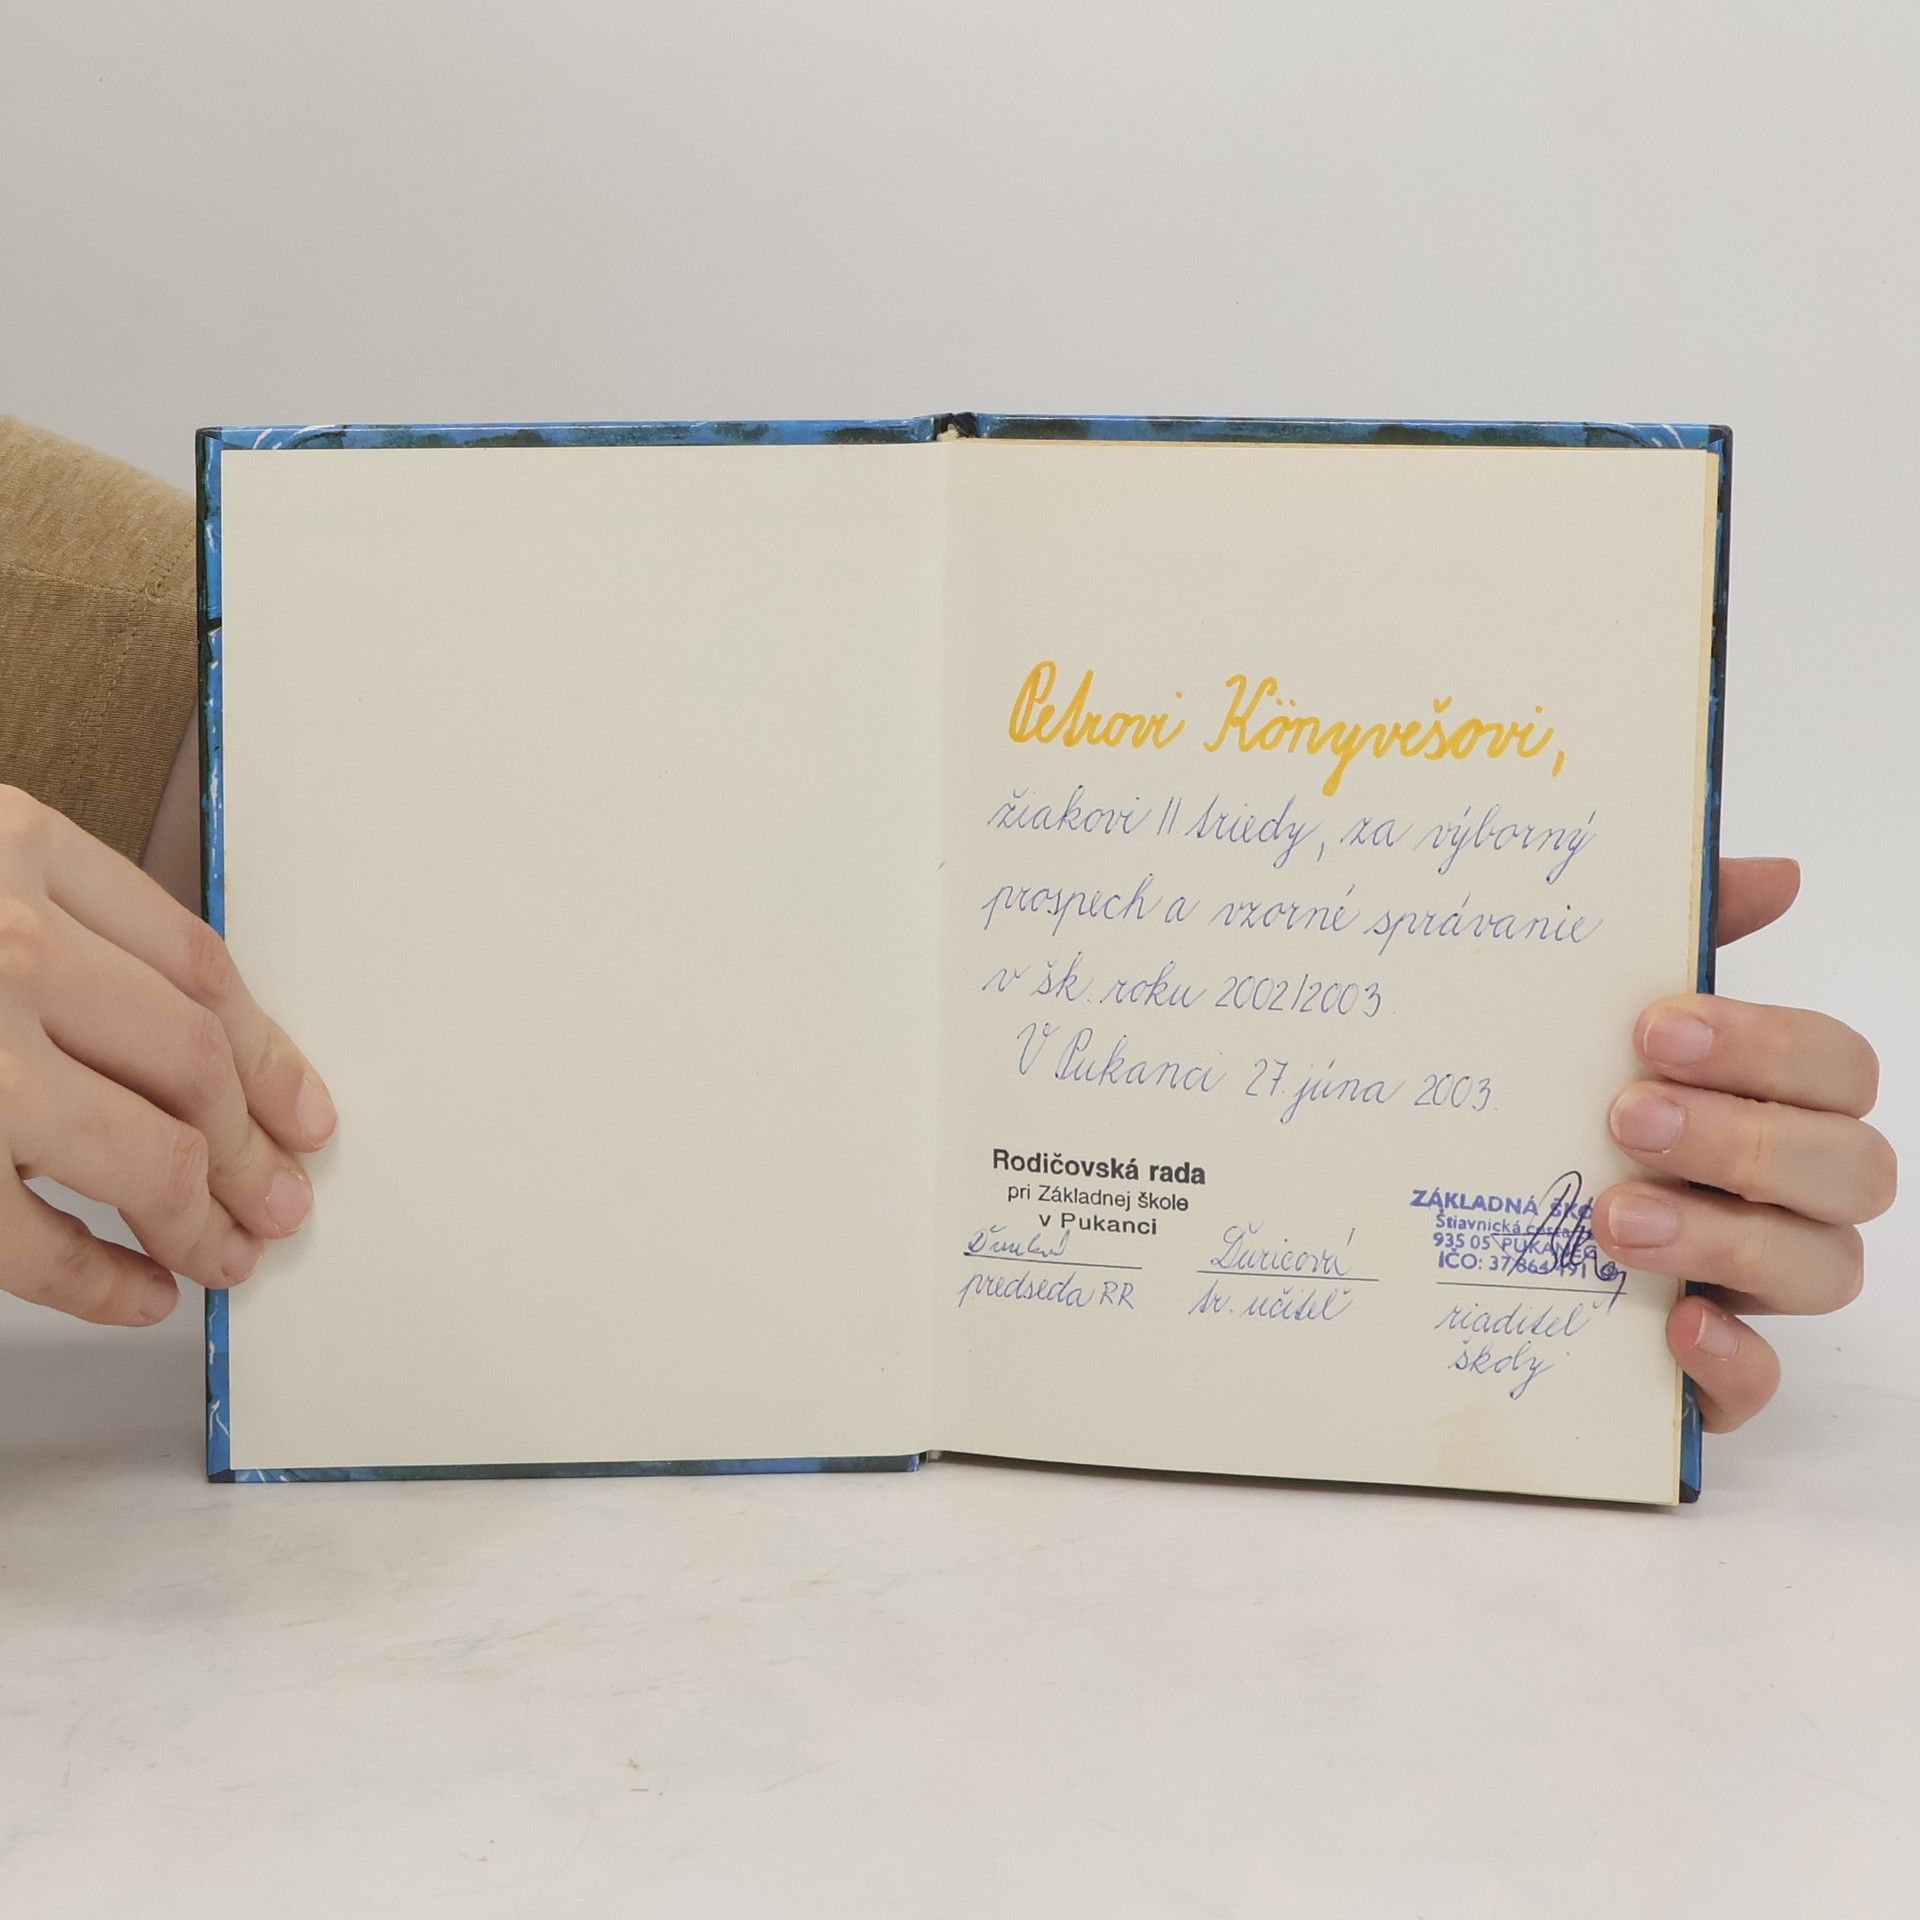 Petrovi Könyvešovi,
žiakovi II. triedy, za výborný
prospech a vzorné správanie
v šk. roku 2002/2003.
V Pukanci 27. júna 2003.
Rodičovská rada
pri Základnej škole
v Pukanci
predseda RR
Ďuricová
tr. učiteľ
ZÁKLADNÁ
Štiavnická cesta
935 05 PUKANEC
IČO: 37 864 491
riaditeľ
školy